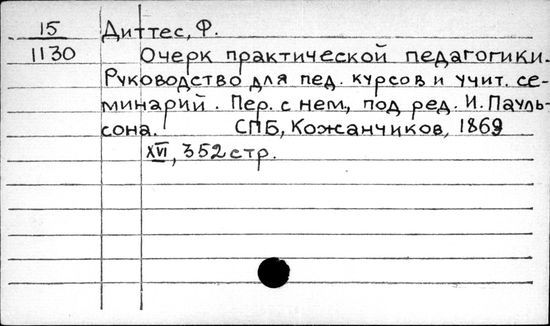 15 Диттес, Ф.
1130 Очерк практической педагогики.
Руководство для пед. курсов и учит. се-
минарий. Пер. с нем., под ред. И. Пауль-
сона. СПБ, Кожанчиков, 1869
XVI, 352 стр.